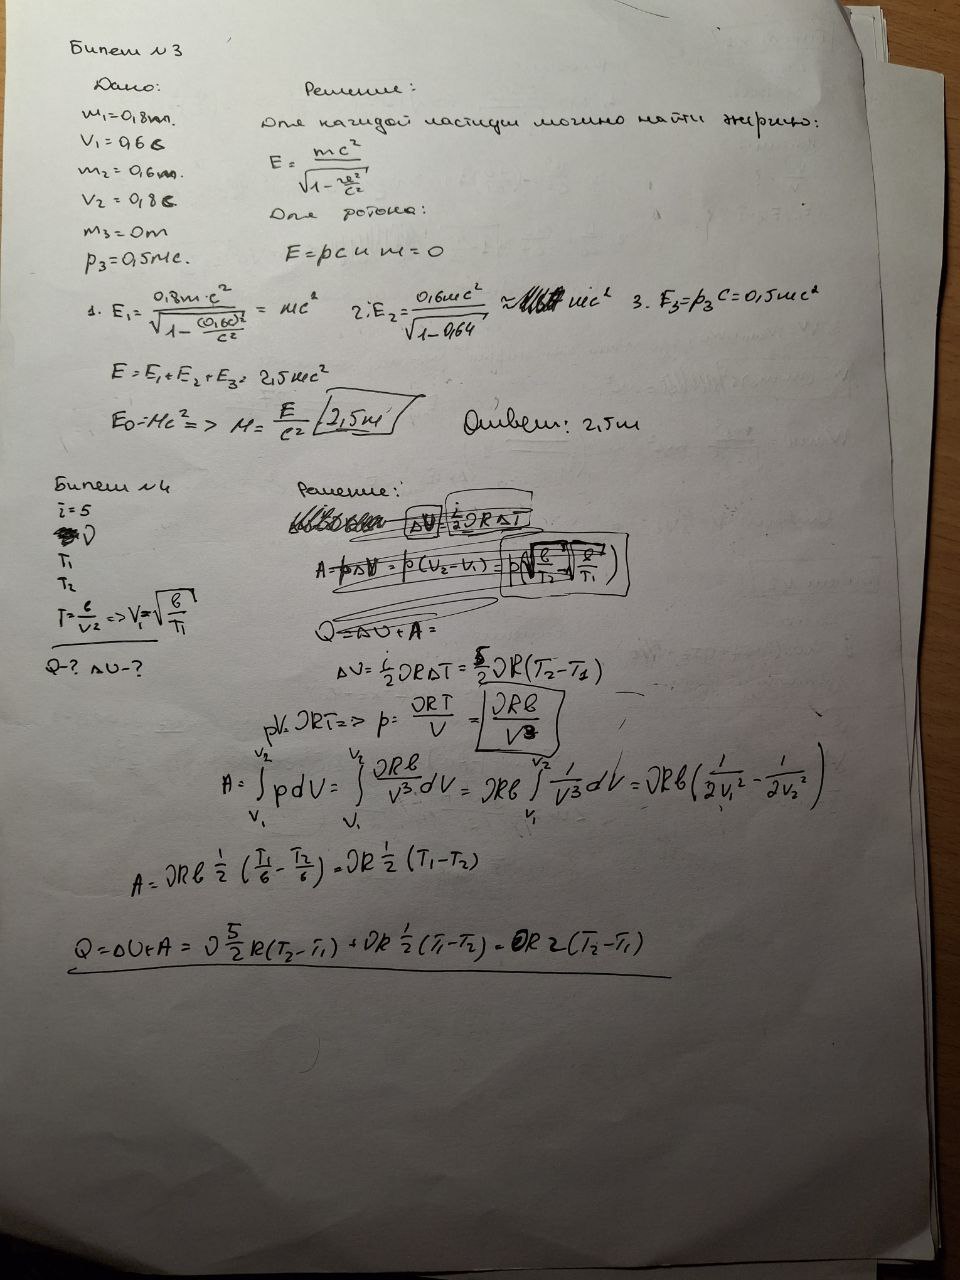 Билет №3
Дано:
Решение:
m₁=0,8m.
V₁=0,6c
m₂=0,6m.
V₂=0,8c
m₃=0m
p₃=0,5mc.
Для каждой частицы можно найти энергию:
E = mc²/√(1-v²/c²)
Для фотона:
E=pc и m=0
1. E₁= 0,8m·c²/√(1-(0,6c)²/c²) = mc²
2. E₂= 0,6mc²/√(1-0,64) ≈ mc²
3. E₃=p₃c=0,5mc²
E=E₁+E₂+E₃= 2,5mc²
E₀=Mc² => M= E/c² 2,5m
Ответ: 2,5m
Билет №4
i=5
ν
T₁
T₂
T= в/V² => V₁=√(в/T₁)
Q-? ΔU-?
Решение:
ΔU= i/2 νRΔT
A=pΔV= p(V₂-V₁)= p(√(в/T₂)-√(в/T₁))
Q=ΔU+A=
ΔU= i/2 νRΔT= 5/2 νR(T₂-T₁)
pV=νRT=> p= νRT/V = νRв/V³
A= ∫ᵥ₁ᵛ² pdV= ∫ᵥ₁ᵛ² νRв/V³ dV = νRв ∫ᵥ₁ᵛ² 1/V³ dV = νRв(1/2V₁² - 1/2V₂²)
A= νRв 1/2 (T₁/в - T₂/в) = νR 1/2 (T₁-T₂)
Q=ΔU+A = ν 5/2 R(T₂-T₁) + νR 1/2 (T₁-T₂) = νR 2(T₂-T₁)